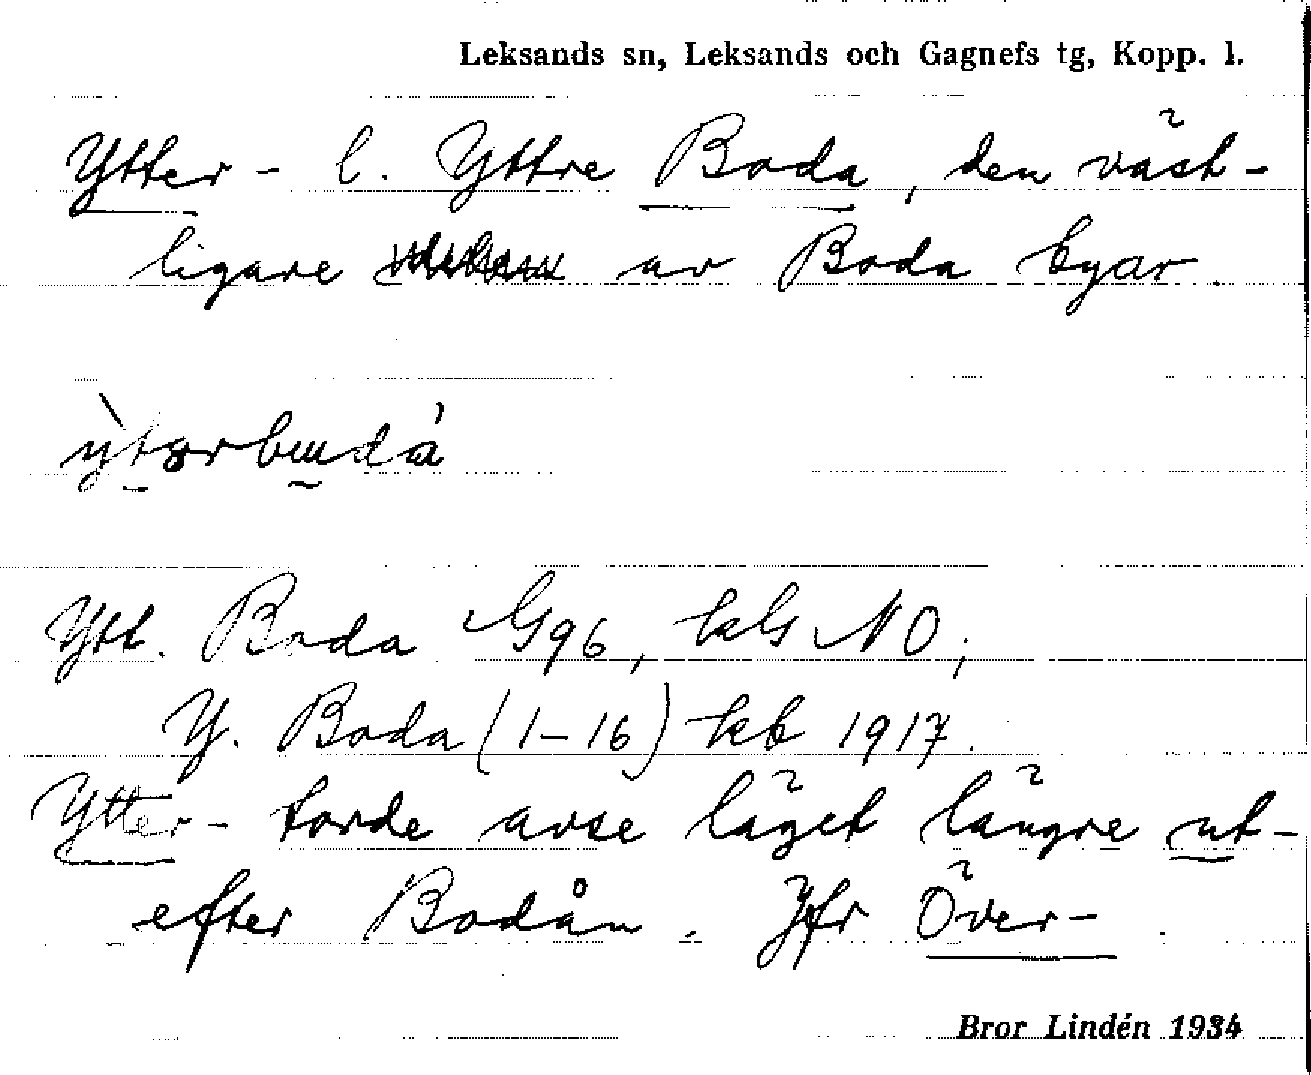 Leksands sn, Leksands och Gagnefs tg, Kopp. l.
Ytter- l. Yttre Boda, den väst-
ligare av Boda byar.
Ytt. Boda G96, kls NO;
Y. Boda (1-16) kb 1917.
Ytter- torde avse läget längre ut-
efter Bodån. Jfr Över-.
Bror Lindén 1934